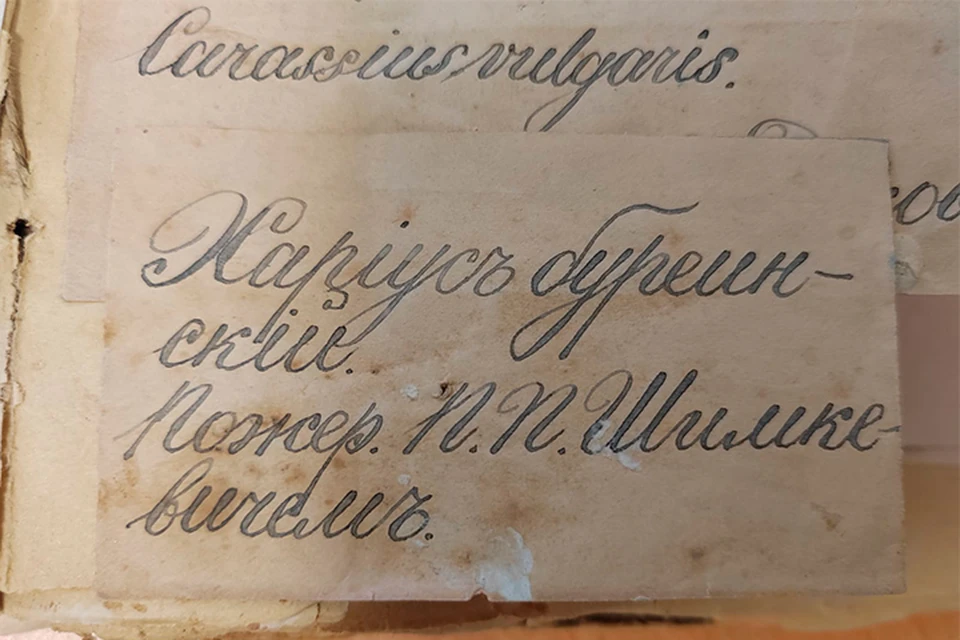 Carassius vulgaris.
Харіусъ буреин-
скій.
Пожер. П. П. Шимке-
вичемъ.